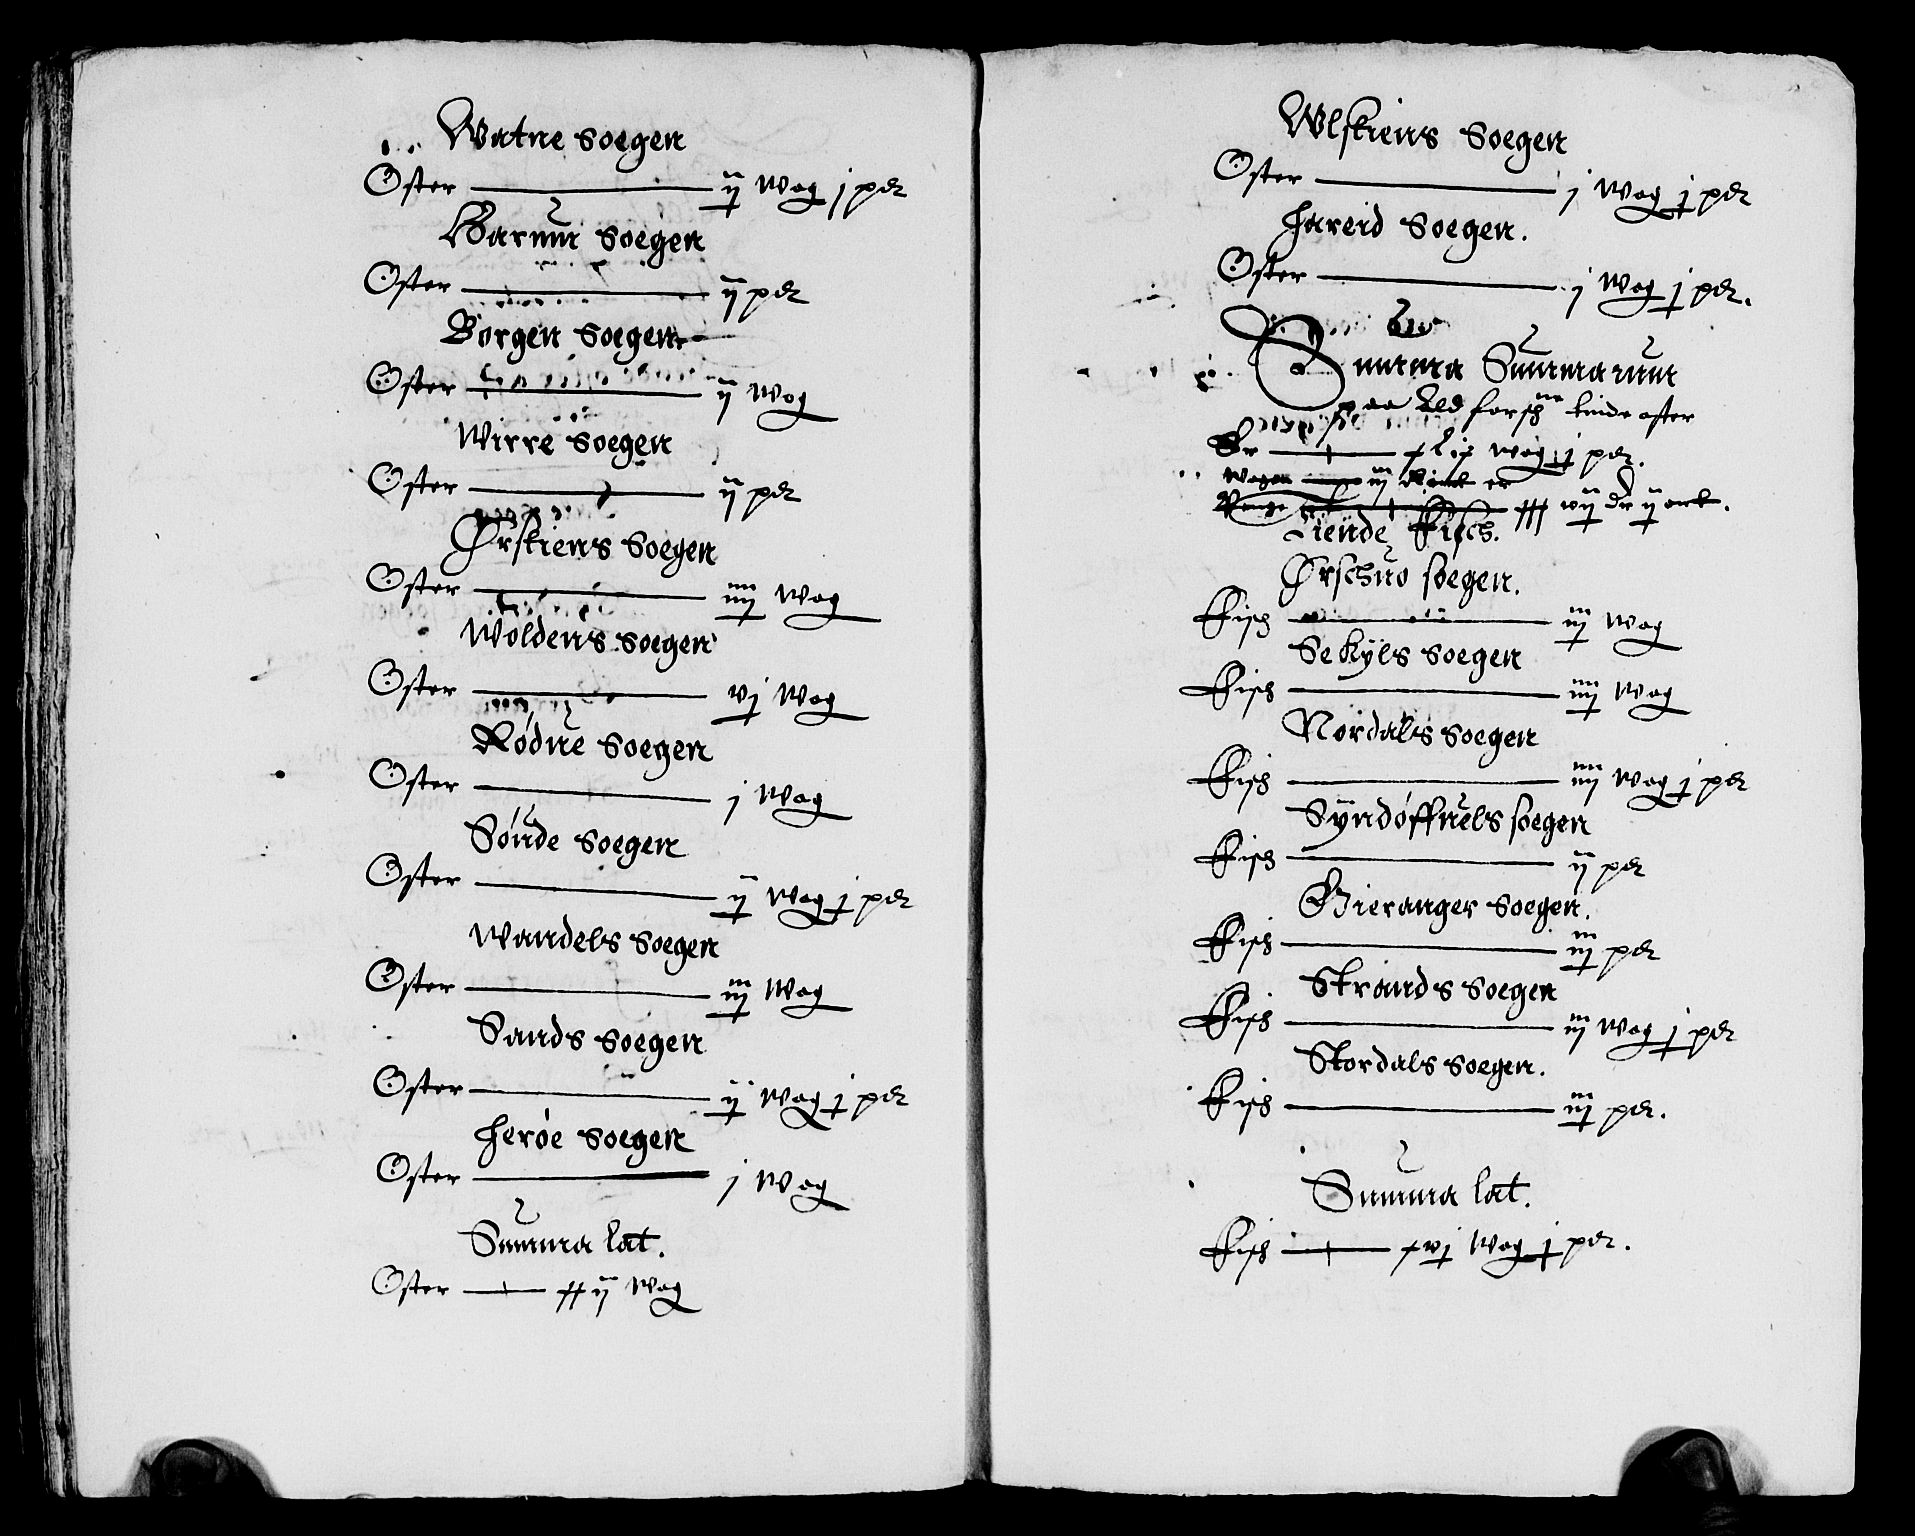 Watne Soegen
Oster — ij Wog j pd
Harum Soegen
Oster — ij pd
Borgen Soegen
Oster — ij Wog
Wirre Soegen
Oster — ij pd
Ørskiens Soegen
Oster — iiij Wog
Woldens Soegen
Oster — vj Wog
Rødue Soegen
Oster — j Wog
Sønde Soegen
Oster — ij Wog j pd
Wandels Soegen
Oster — iij Wog
Sands Soegen
Oster — ij Wog j pd
Herøe Soegen
Oster — j Wog
Summa lat.
Oster — xxij Wog
Wlskiens Soegen
Oster — j Wog j pd
Hareid Soegen.
Oster — j Wog j pd.
Summa Summarum
paa tiende oster
Er — Wog j pd.
Tiende Fisch.
Ørschuo soegen.
Fisch — iij Wog
Sekyls Soegen
Fisch — iiij Wog
Nordals Soegen
Fisch — iiij Wog j pd
Syndøffuels soegen
Fisch — ij pd
Gieranger Soegen.
Fisch — iij pd
Strands Soegen
Fisch — iij Wog j pd
Stordals Soegen.
Fisch — iij pd.
Summa lat.
Fisch — xvj Wog j pd.